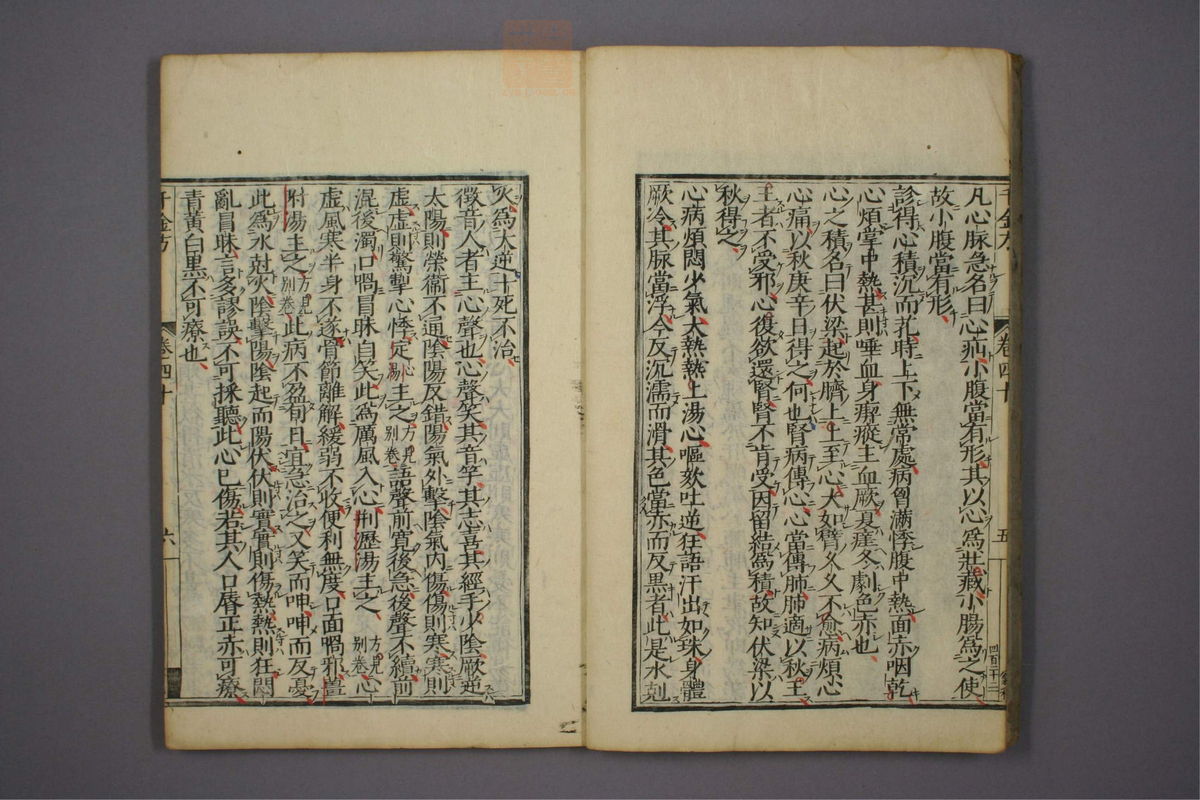 凡心脉急名曰心疝小腹當有形其以心爲牡藏小腸爲之使
故小腹當有形
診得心積沉而芤時上下無常處病胷滿悸腹中熱面赤咽乾
心煩掌中熱甚則唾血身瘈瘲主血厥夏瘥冬劇色赤也
心之積名曰伏梁起於臍上上至心大如臂久久不愈病煩心
心痛以秋庚辛日得之何也腎病傳心心當傳肺肺適以秋王
王者不受邪心復欲還腎腎不肯受因留結爲積故知伏梁以
秋得之
心病煩悶少氣大熱熱上湯心嘔欬吐逆狂語汗出如珠身體
厥冷其脉當浮今反沉濡而滑其色當赤而反黒者此是水剋
千金方
卷四十
五
四百三十二
火爲大逆十死不治
徵音人者主心聲也心聲笑其音竽其志喜其經手少陰厥逆
太陽則榮衞不通陰陽反錯陽氣外擊陰氣内傷傷則寒寒則
虚虚則驚掣心悸定心湯主之方見別卷語聲前寛後急後聲不續前
混後濁口喎冒昧自笑此爲厲風入心荆瀝湯主之方見別卷心
虚風寒半身不遂骨節離解緩弱不收便利無度口面喎邪薑
附湯主之方見別卷此病不盈旬日宜急治之又笑而呻呻而反憂
此爲水尅火陰擊陽陰起而陽伏伏則實實則傷熱熱則狂悶
亂冒昧言多謬誤不可採聽此心已傷若其人口脣正赤可療
青黄白黒不可療也
千金方
卷四十
六